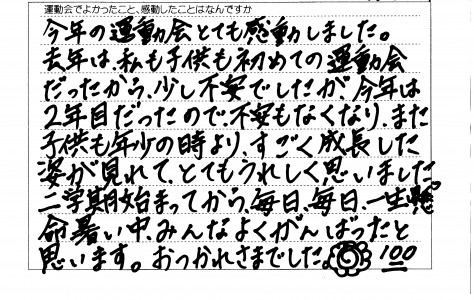 運動会でよかったこと、感動したことはなんですか
今年の運動会とても感動しました。
去年は、私も子供も初めての運動会
だったから、少し不安でしたが、今年は
2年目だったので、不安もなくなり、また
子供も年少の時より、すごく成長した
姿が見れて、とてもうれしく思いました。
二学期始まってから、毎日、毎日、一生懸
命、暑い中、みんなよくがんばったと
思います。おつかれさまでした。 100